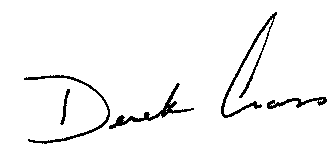 Derek Cross